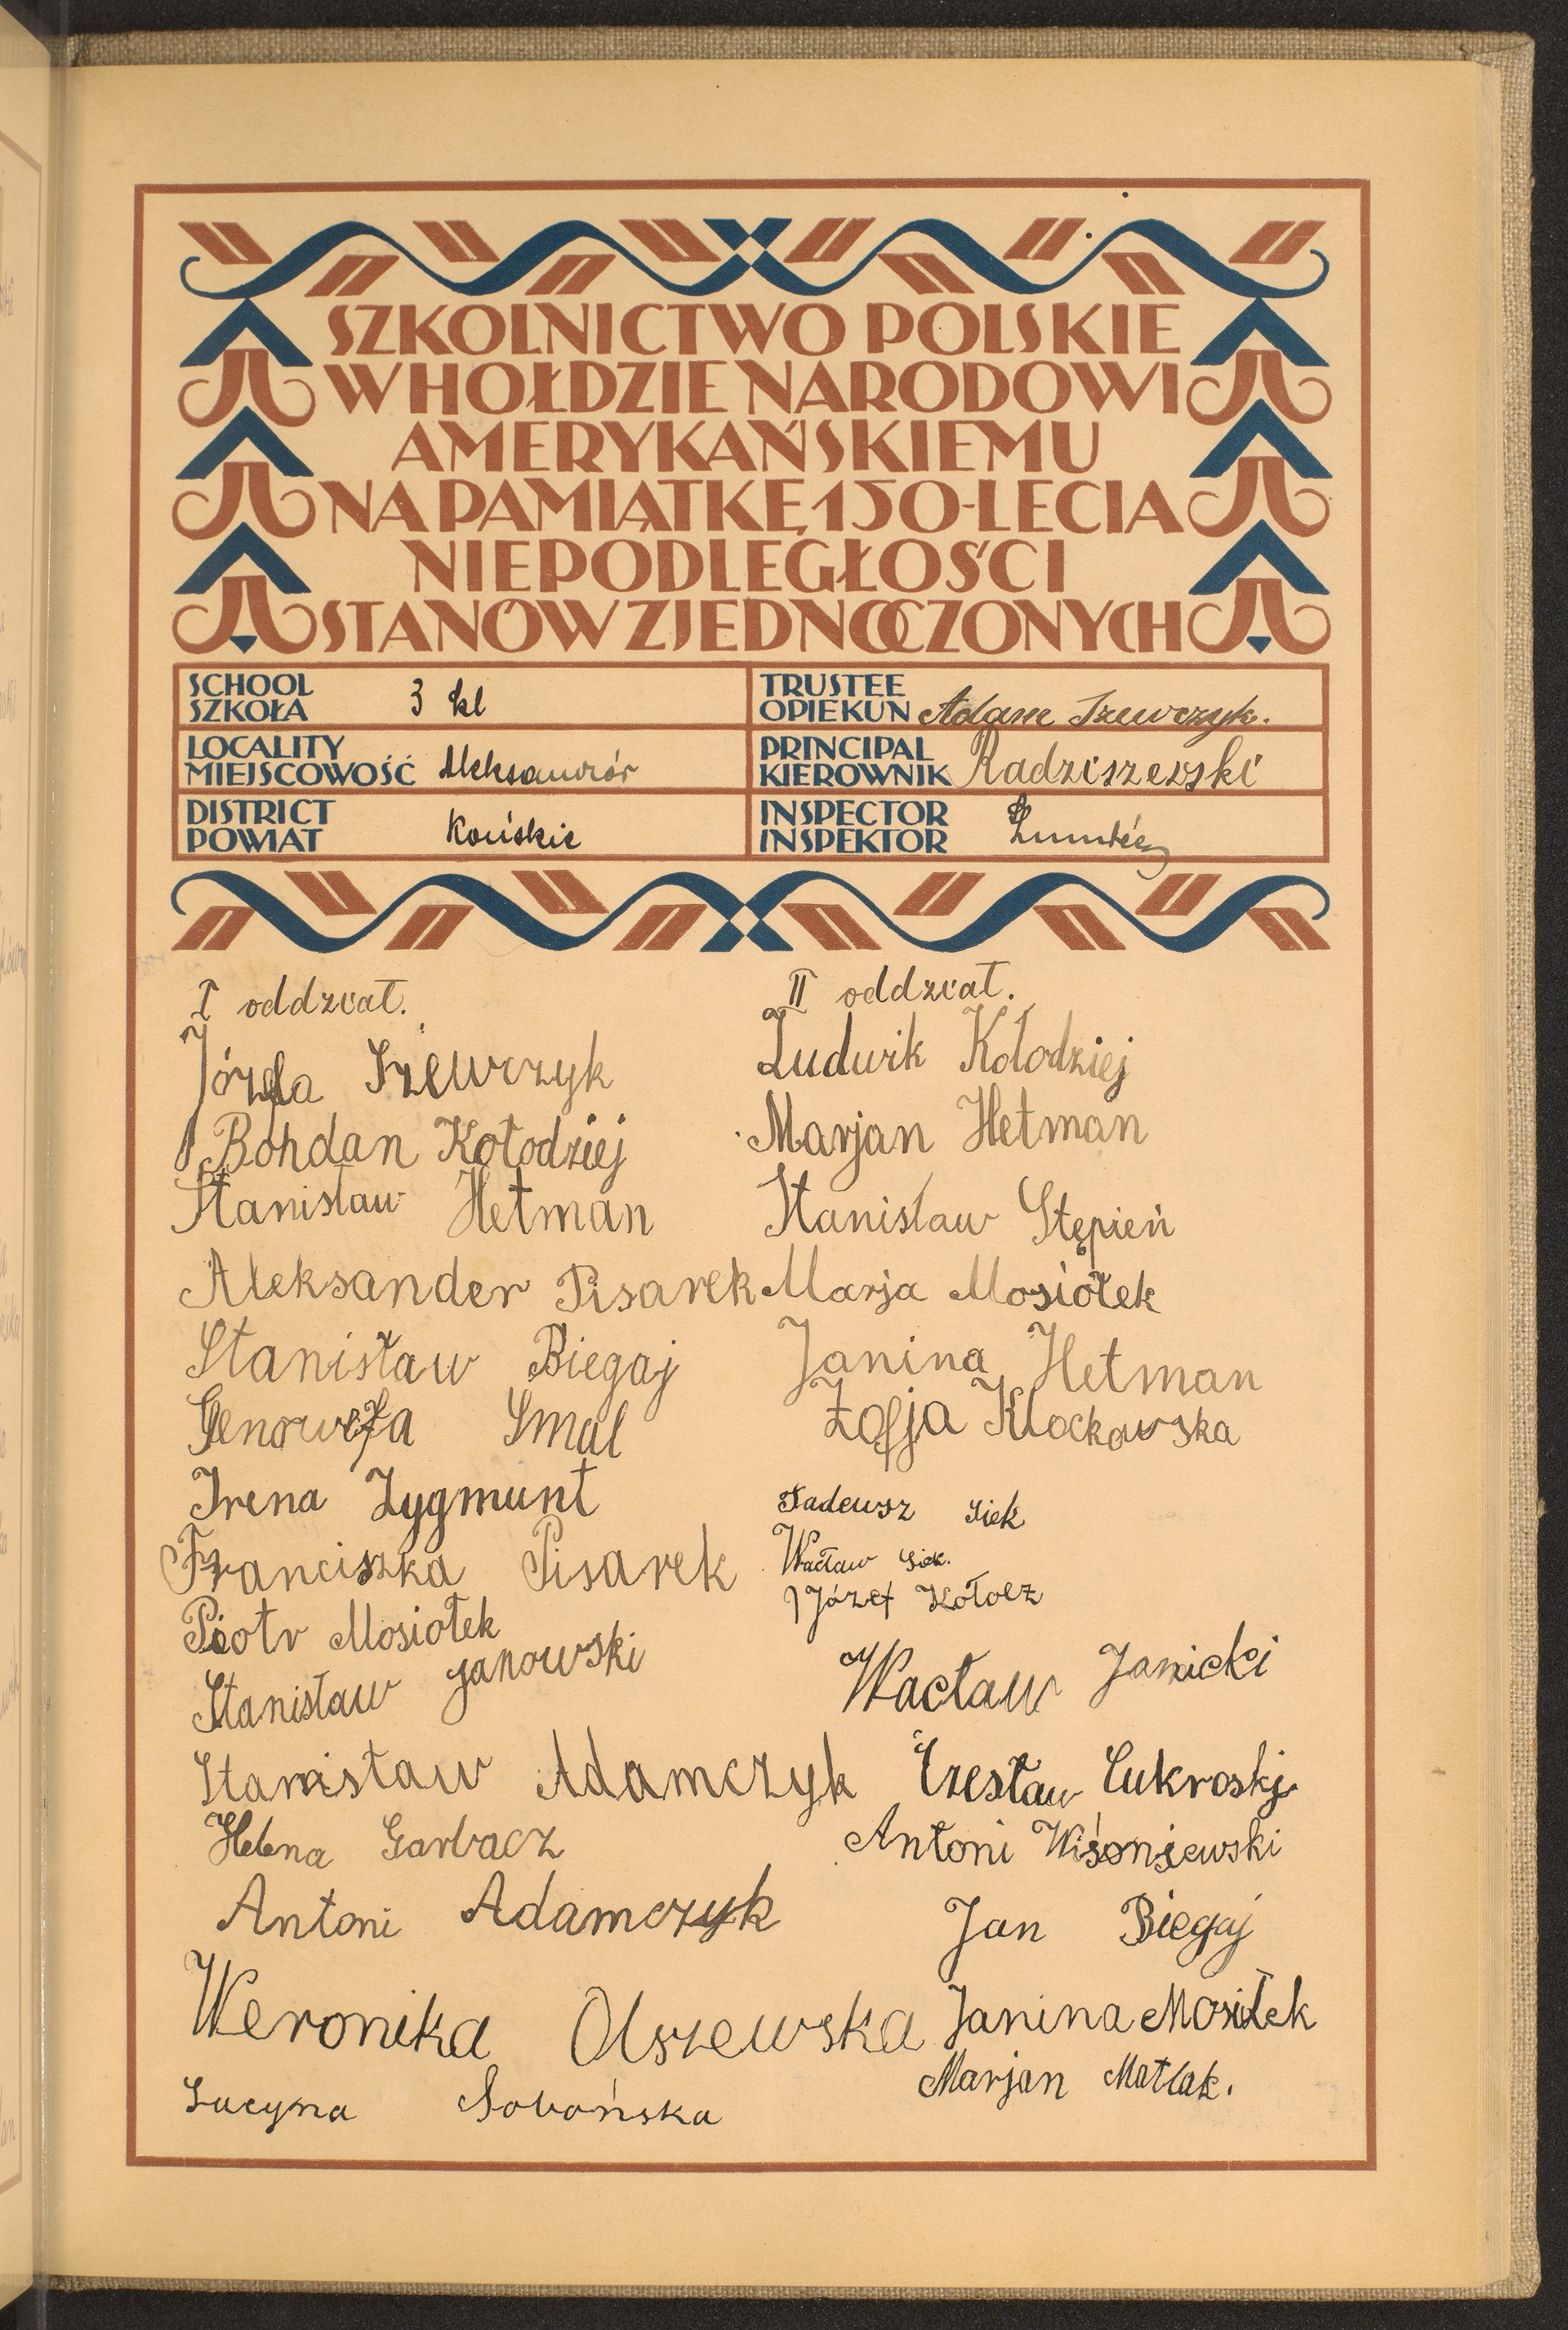 SZKOLNICTWO POLSKIE
W HOŁDZIE NARODOWI
AMERYKAŃSKIEMU
NA PAMIĄTKĘ 150-LECIA
NIEPODLEGŁOŚCI
STANÓW ZJEDNOCZONYCH
SCHOOL
SZKOŁA 3 kl
LOCALITY
MIEJSCOWOŚĆ Aleksandrów
DISTRICT
POWIAT Końskie
TRUSTEE
OPIEKUN Adam Szewczyk.
PRINCIPAL
KIEROWNIK Radziszewski
INSPECTOR
INSPEKTOR
I oddział.
Józefa Szewczyk
Bohdan Kołodziej
Stanisław Hetman
Aleksander Pisarek
Stanisław Biegaj
Genowefa Smal
Irena Zygmunt
Franciszka Pisarek
Piotr Mosiołek
Stanisław Janowski
Stanistaw Adamczyk
Helena Garbacz
Antoni Adamczyk
Weronika Olszewska
Lucyna Sobońska
II oddział.
Ludwik Kołodziej
Marjan Hetman
Stanisław Stępień
Marja Mosiołek
Janina Hetman
Zofja Klockowska
Tadeusz Siek
Wacław Siek.
Józef Kołoez
Wacław Janicki
Czesław Cukroski
Antoni Wiśoniewski
Jan Biegaj
Janina Mosiłek
Marjan Matlak.